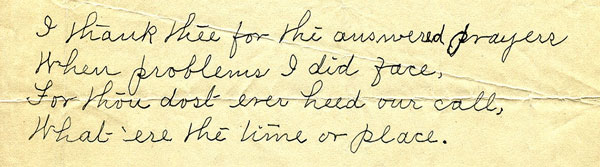 I thank thee for the answered prayers
When problems I did face,
For thou dost ever heed our call,
What 'ere the time or place.